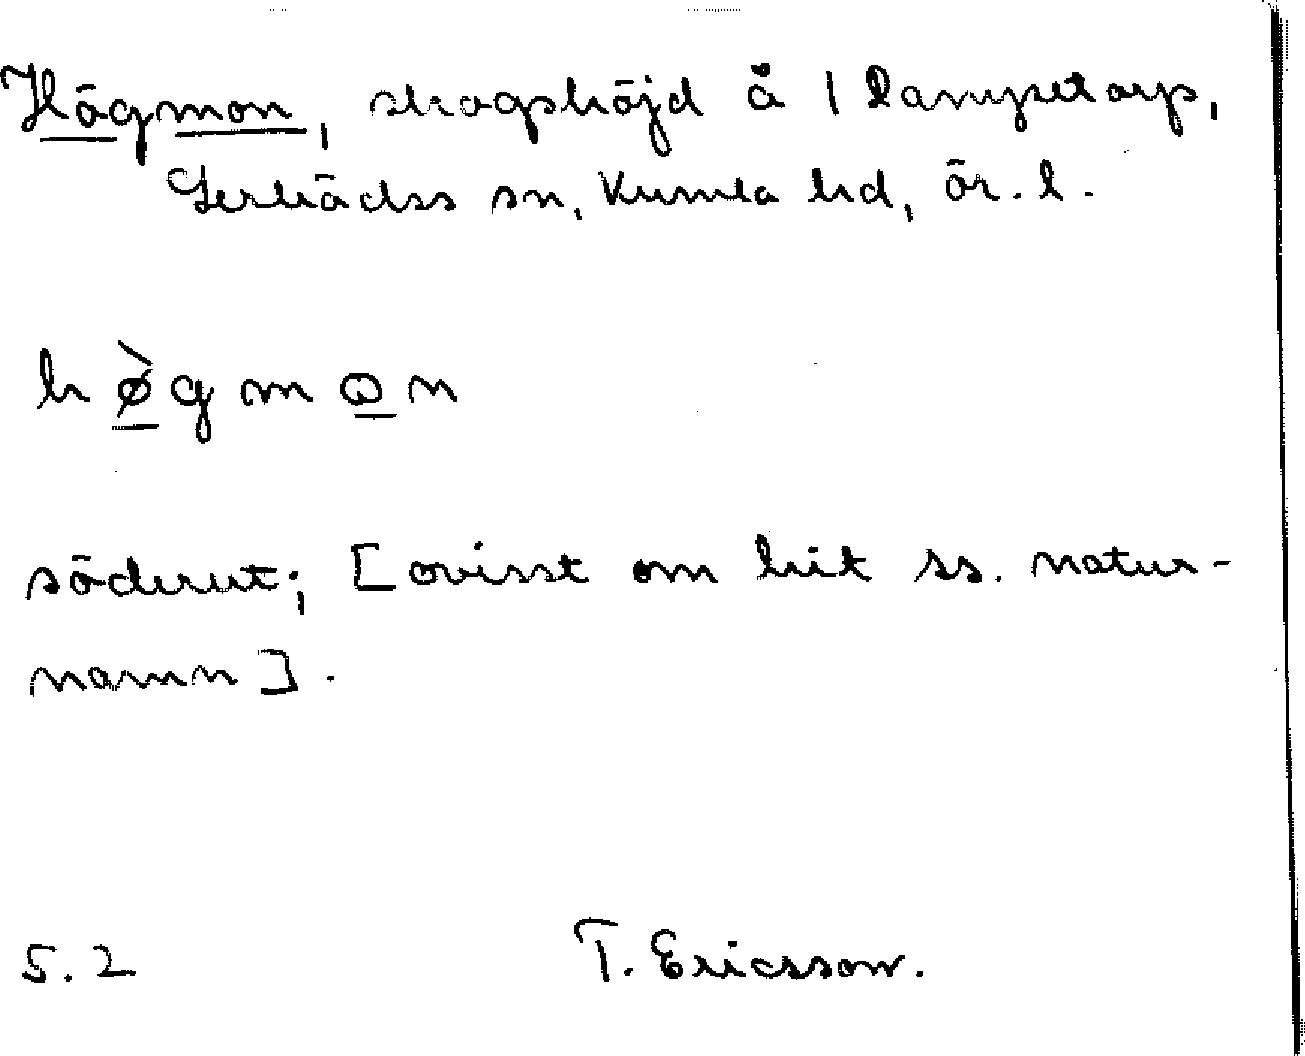 Högmon, skogshöjd å 1
Lerbäcks sn, Kumla hd, Ör. l.
h ø̲̀ g m ꞷ̲ n
söderut; [ovisst om hit ss. natur-
namn].
5.2 T. Ericsson.